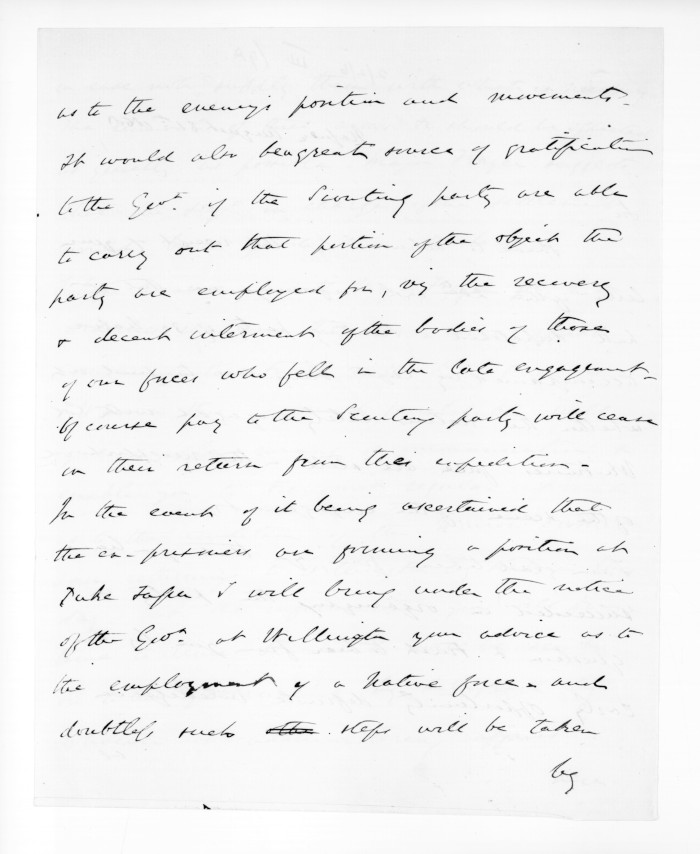 as to the enemys position and movements.
It would also be a great source of gratification
to the Govt. if the Scouting party are able
to carry out that portion of the object the
party are employed for, viz the recovery
& decent interment of the bodies of those
of our forces who fell in the late engagement.
Of course pay to the Scouting party will cease
on their return from this expedition.
In the event of it being ascertained that
the ex-prisoners are forming a position at
Puke I will bring under the notice
of the Govt. at Wellington your advice as to
the employment of a Native force and
doubtless such steps will be taken
by